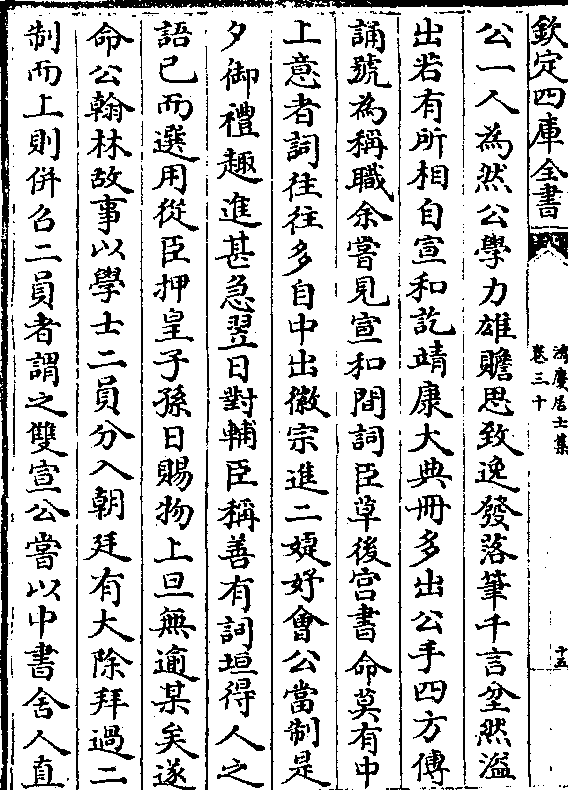 欽定四庫全書
鴻慶居士集
卷三十
十五
公一人為然公學力雄贍思致逸發落筆千言坌然溢
出若有所相自宣和訖靖康大典冊多出公手四方傳
誦號為稱職余嘗見宣和間詞臣草後宫書命莫有中
上意者詞往往多自中出徽宗進二婕妤會公當制是
夕御禮趣進甚急翌日對輔臣稱善有詞垣得人之
語已而選用從臣押皇子孫日賜物上旦無逾某矣遂
命公翰林故事以學士二員分入朝廷有大除拜過二
制而上則併召二員者謂之雙宣公嘗以中書舍人直